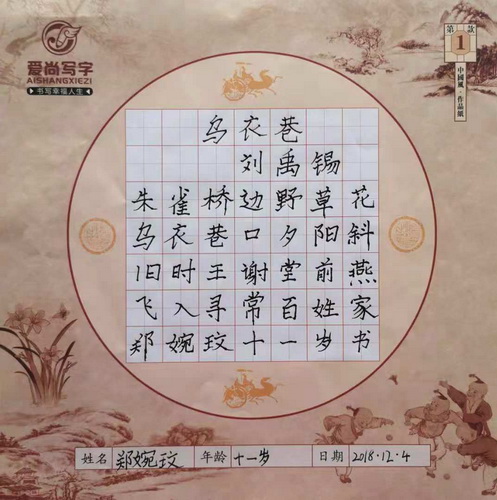 爱尚写字
AISHANGXIEZI
书写幸福人生
第1款
中國風·作品纸
乌衣巷
刘禹锡
朱雀桥边野草花
乌衣巷口夕阳斜
旧时王谢堂前燕
飞入寻常百姓家
郑婉玟十一岁书
姓名 郑婉玟 年龄 十一岁 日期 2018·12·4